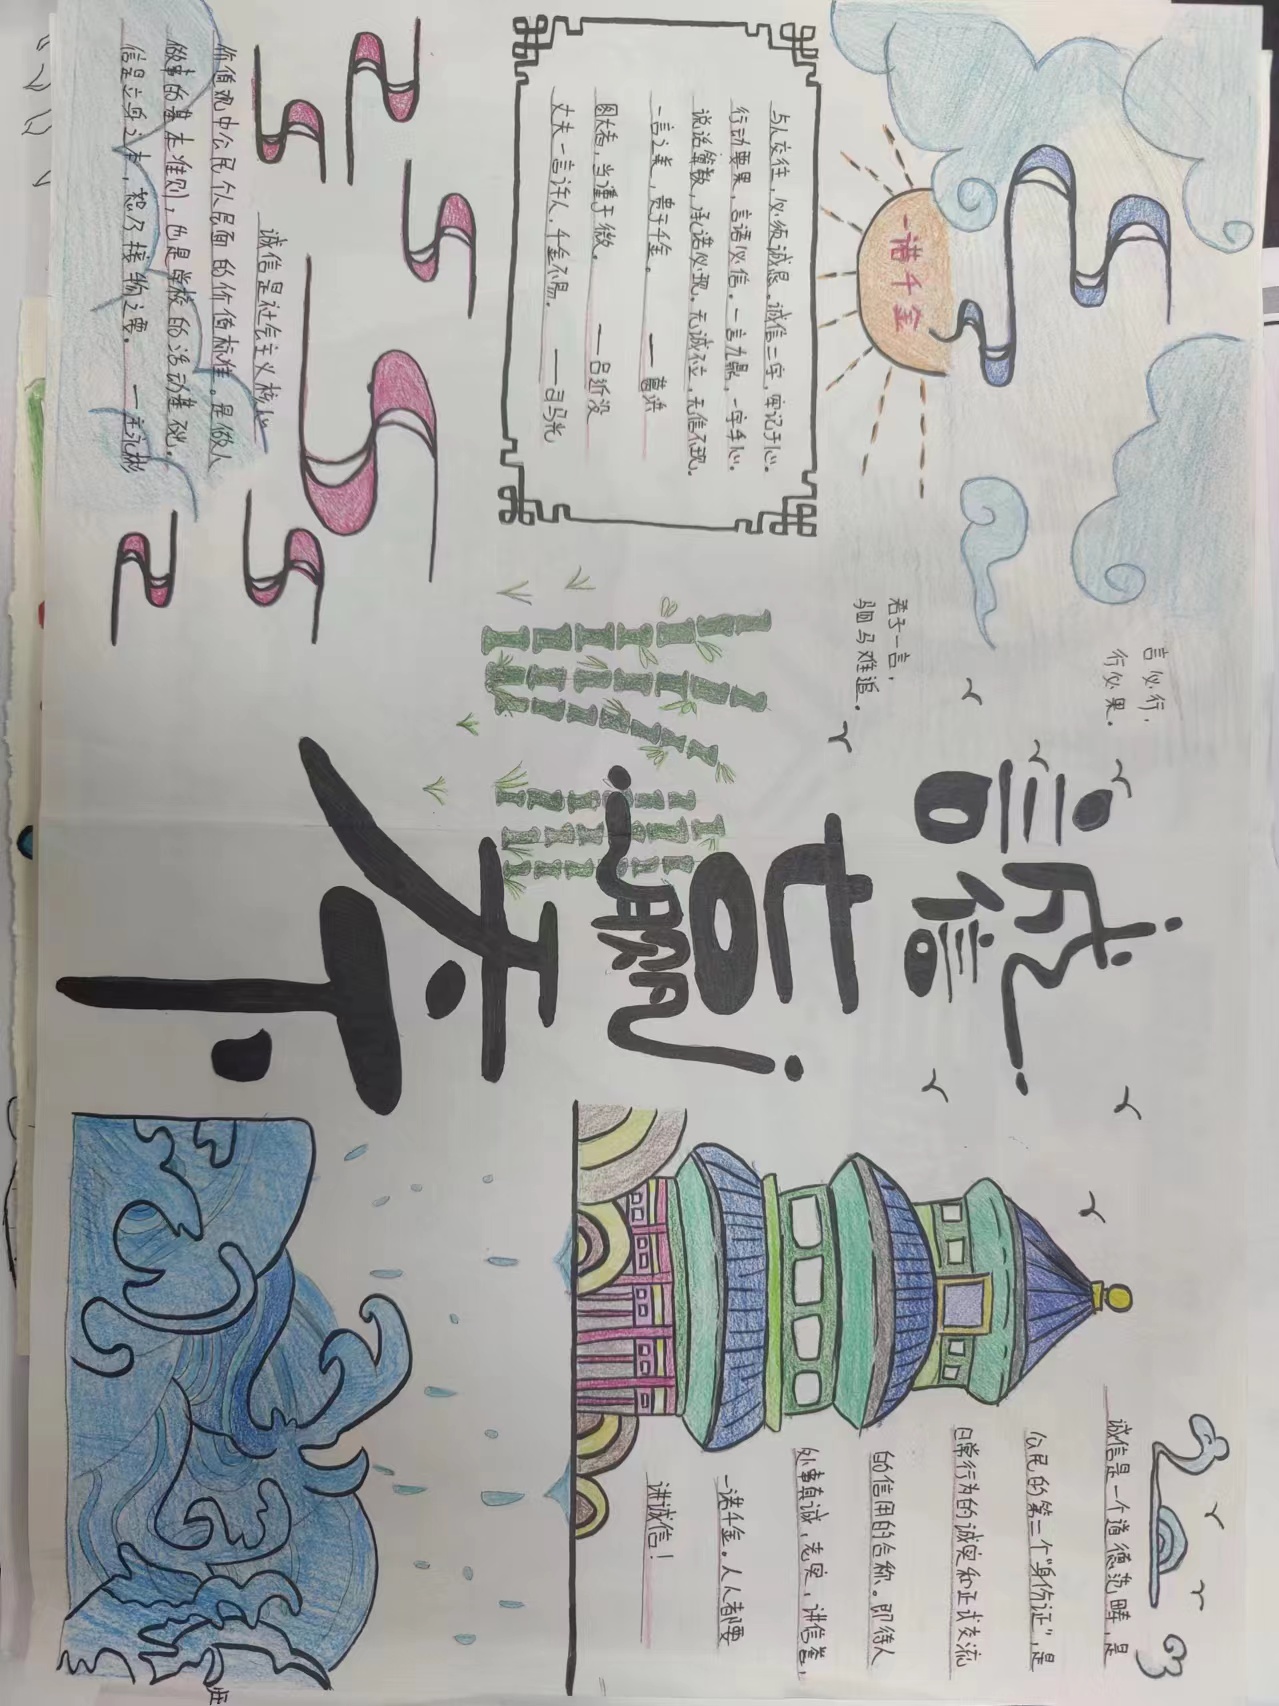 一诺千金
与人交往，必须诚恳。诚信二字，牢记于心。
行动要果，言语必信。一言九鼎，一字千心。
说话算数，承诺必现。无诚不立，无信不现。
一言之美，贵于千金。——葛洪
图大者，当谨于微。
丈夫一言许人，千金不易。——司马光
诚信是社会主义核心
价值观中公民个人层面的价值标准。是做人
做事的基本准则，也是学校的活动基础。
信是立身之本，恕乃接物之要。
言必行，
行必果。
君子一言，
驷马难追。
诚信
诚信是一个道德范畴，是
公民的第二个“身份证”，是
日常行为的诚实和正式交流
的信用的合称。即待人
处事真诚，老实，讲信誉，
一诺千金。人人都要
讲诚信！